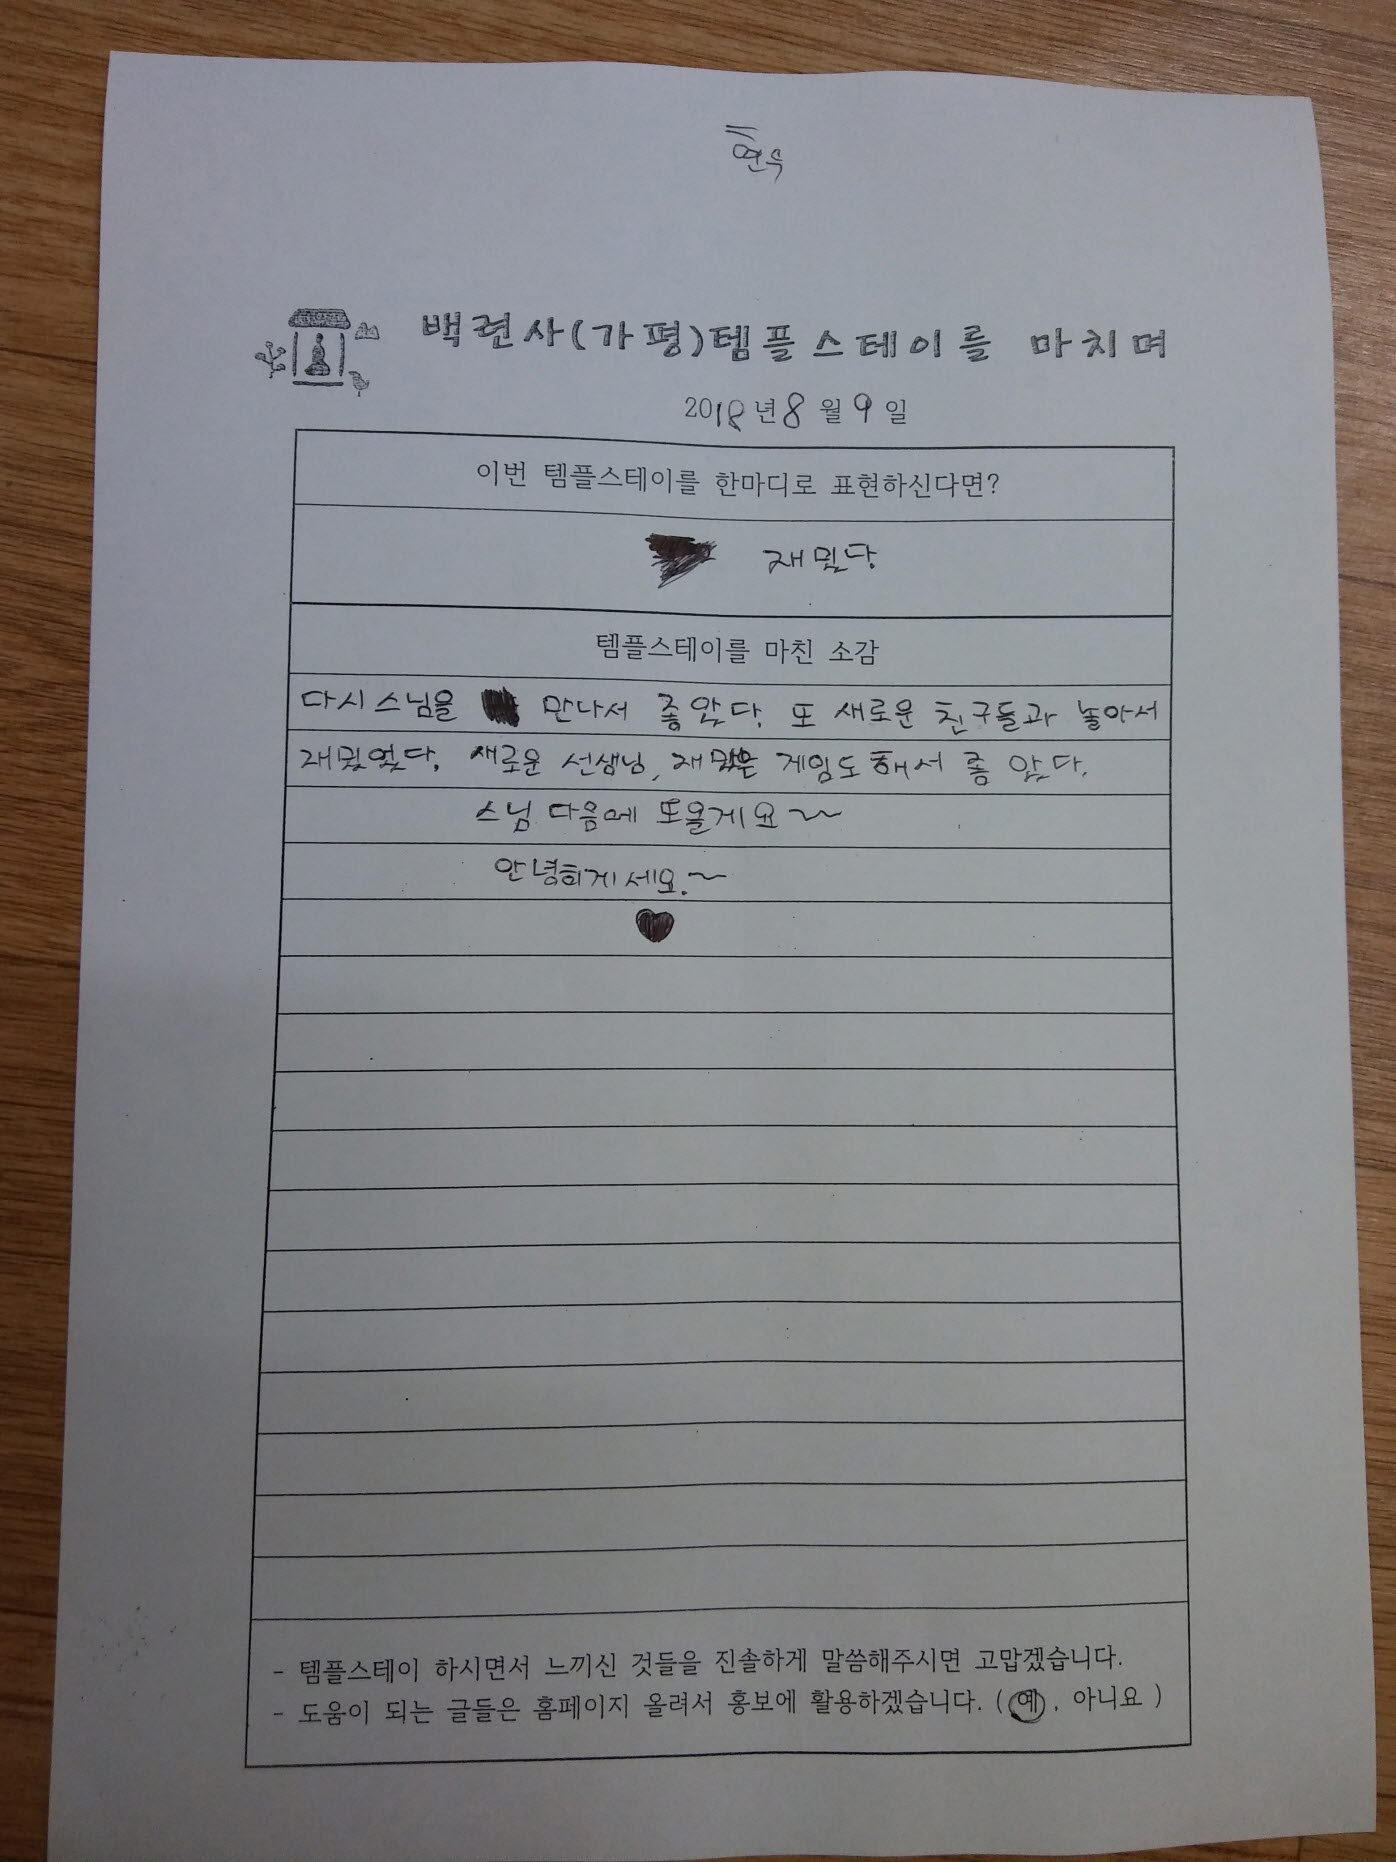 현우
백련사(가평)템플스테이를 마치며
2018년 8월 9일
이번 템플스테이를 한마디로 표현하신다면?
재밌당
템플스테이를 마친 소감
다시 스님을 만나서 좋았다. 또 새로운 친구들과 놀아서
재밌었다. 새로운 선생님, 재밌는 게임도 해서 좋았다.
스님 다음에 또올게요~~
안녕히게세요.~
- 템플스테이 하시면서 느끼신 것들을 진솔하게 말씀해주시면 고맙겠습니다.
- 도움이 되는 글들은 홈페이지 올려서 홍보에 활용하겠습니다. ( 예 , 아니요 )